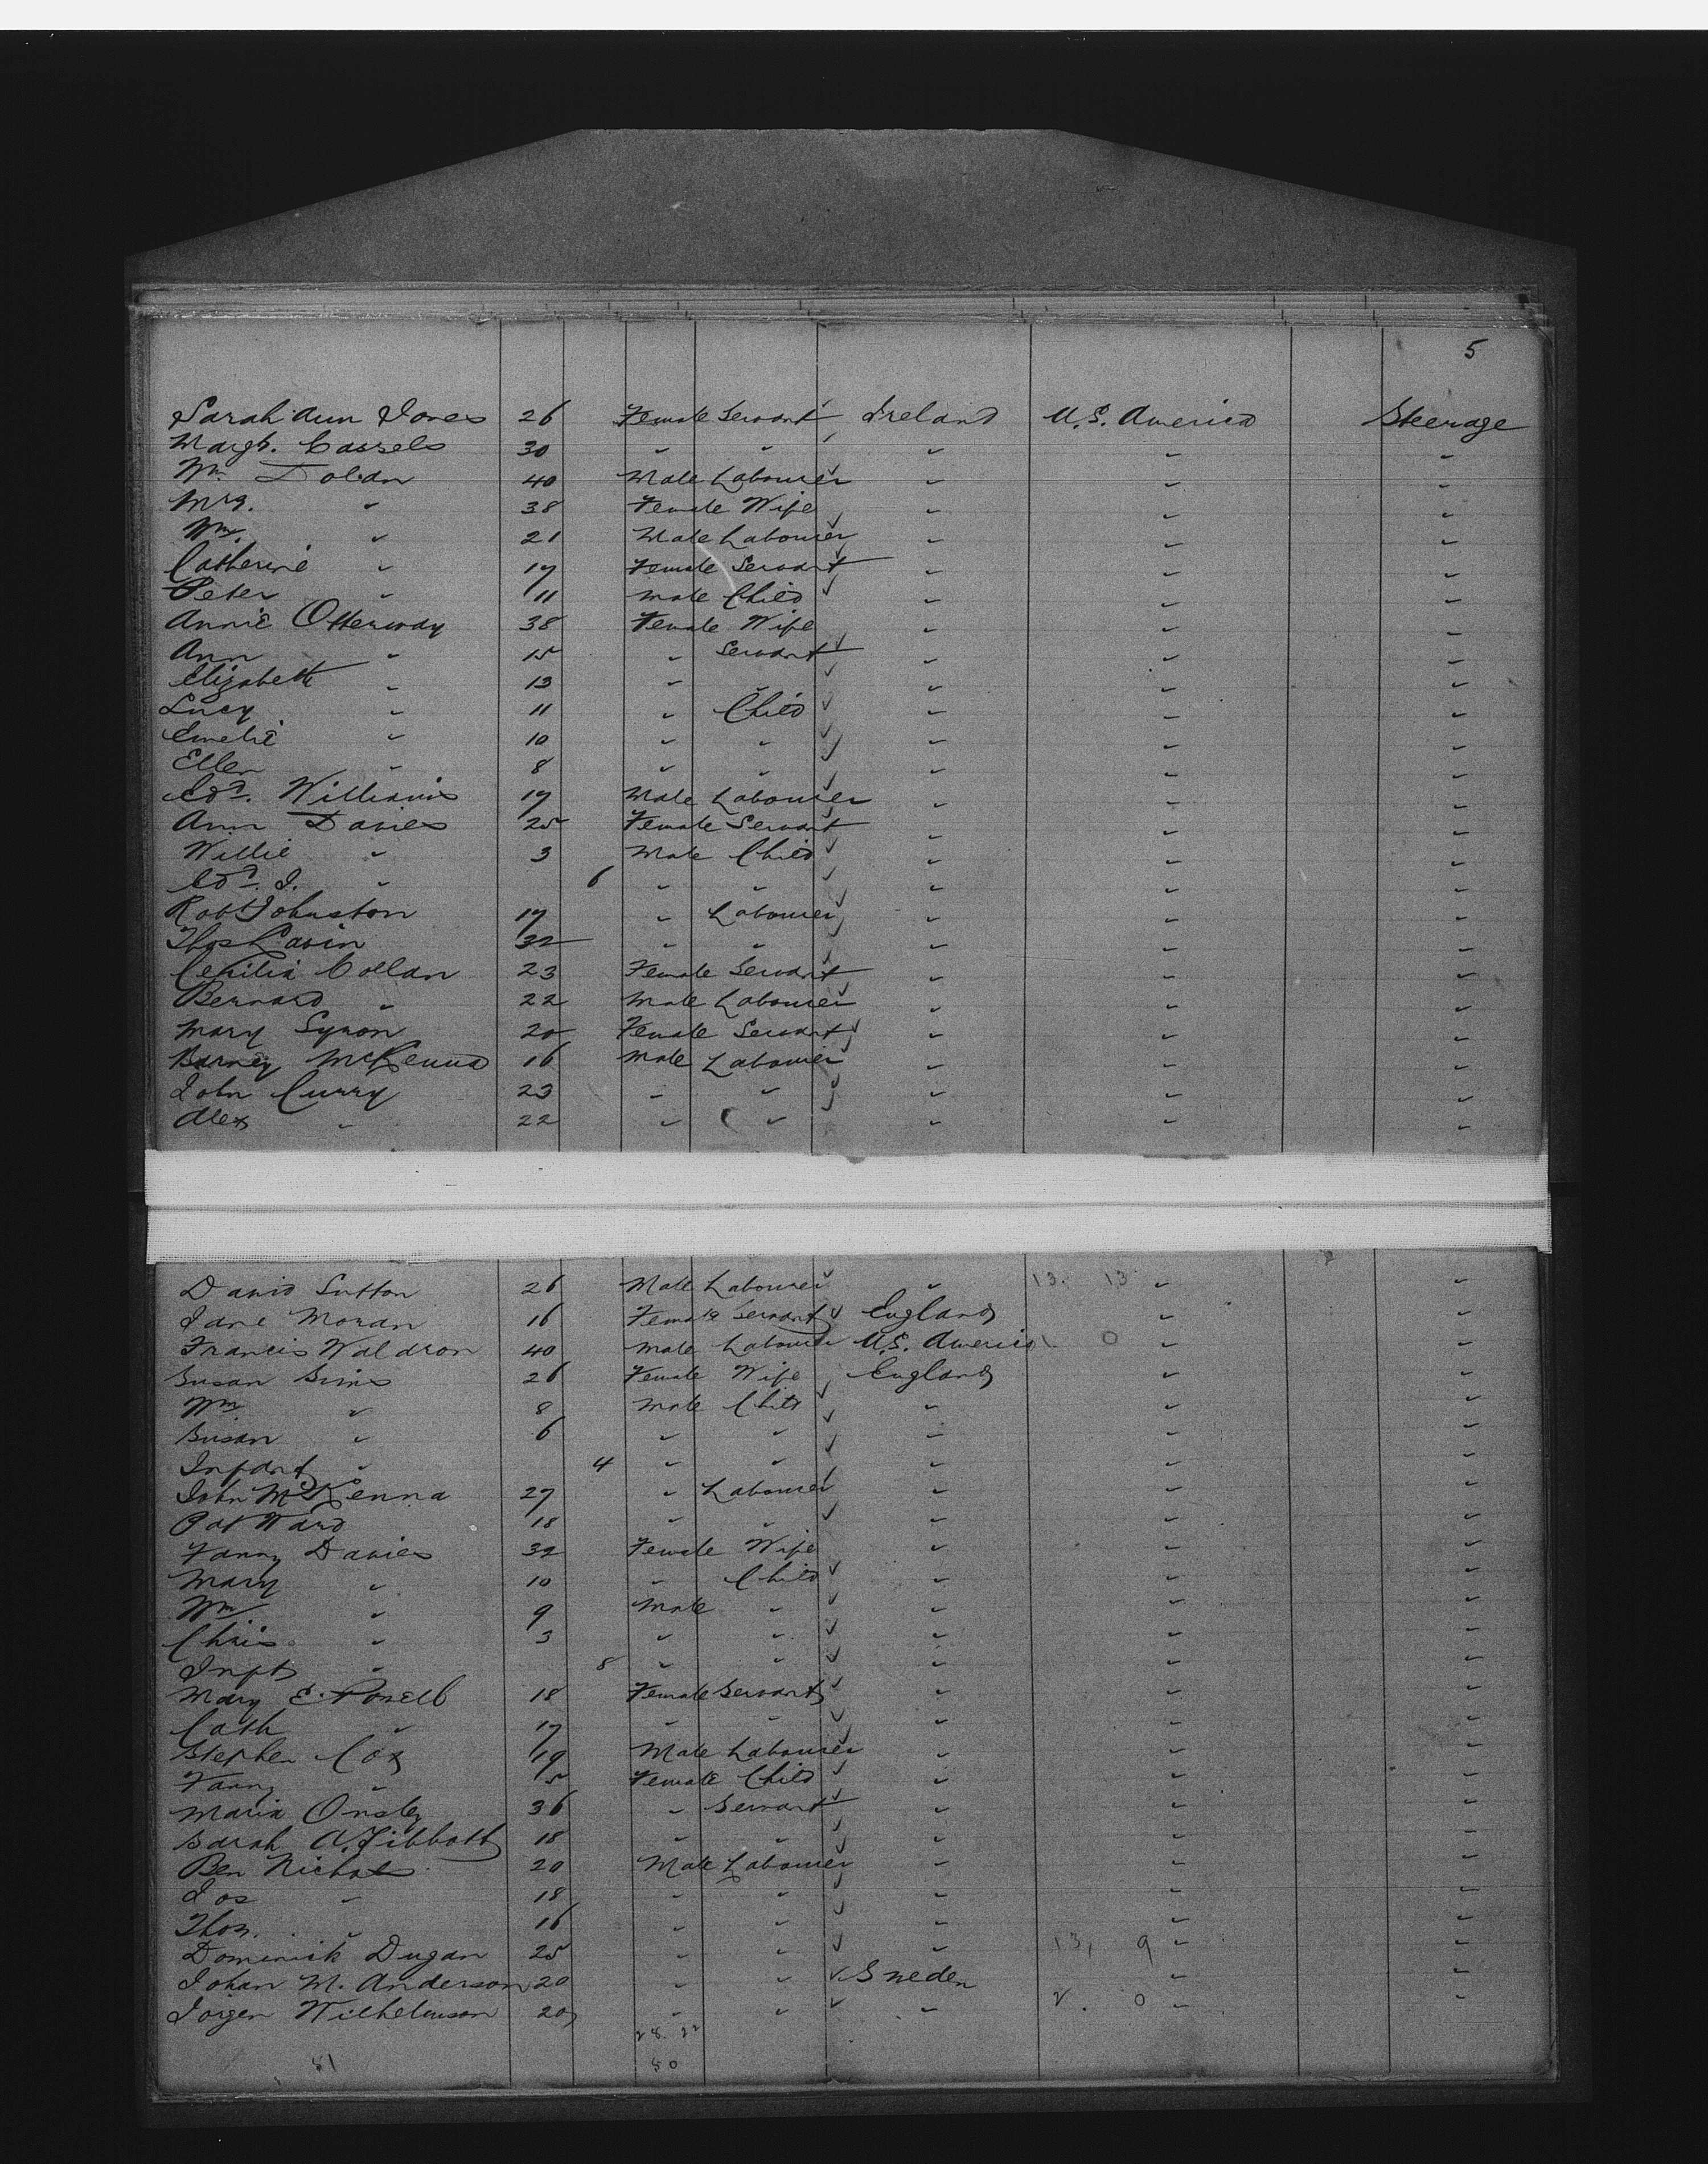 5
Sarah Ann Jones 26 Female Servant Ireland U.S. America Steerage
Margt. Cassels 30 " " " " "
Wm. Dolan 40 Male Labourer " " "
Mrs. " 38 Female Wife " " "
Wm. " 21 Male Labourer " " "
Catherine " 17 Female Servant " " "
Peter " 11 Male Child " " "
Annie Otterway 38 Female Wife " " "
Ann " 15 " Servant " " "
Elizabeth " 13 " " " " "
Lucy " 11 " Child " " "
Emelie " 10 " " " " "
Ellen " 8 " " " " "
Edd. Williams 17 Male Labourer " " "
Ann Davies 25 Female Servant " " "
Willie " 3 Male Child " " "
Edd. J. " 6 " " " " "
Robt Johnston 17 " Labourer " " "
Thos Lavin 32 " " " " "
Cecilia Collan 23 Female Servant " " "
Bernard " 22 Male Labourer " " "
Mary Synon 20 Female Servant " " "
Barney McKenna 16 Male Labourer " " "
John Curry 23 " " " " "
Alex " 22 " " " " "
David Sutton 26 Male Labourer " 13. 13 " "
Jane Moran 16 Female Servant England " "
Francis Waldron 40 Male Labourer U.S. America 1. 0 " "
Susan Sims 26 Female Wife England " "
Wm " 8 Male Child " " "
Susan " 6 " " " " "
Infant " 4 " " " " "
John McKenna 27 " Labourer " " "
Pat Ward 18 " " " " "
Fanny Davies 32 Female Wife " " "
Mary " 10 " Child " " "
Wm " 9 Male " " " "
Chris " 3 " " " " "
Inft " 8 " " " " "
Mary E. Powell 18 Female Servant " " "
Cath " 17 " " " " "
Stephen Cox 19 Male Labourer " " "
Fanny " 5 Female Child " " "
Maria Onsley 36 " Servant " " "
Sarah A. Tibbott 18 " " " " "
Ben Nichols 20 Male Labourer " " "
Jos " 18 " " " " "
Thos. " 16 " " " " "
Dominick Dugan 25 " " " 13, 9 " "
Johan M. Anderson 20 " " Sweden " "
Jorgen Wilhelmson 20 " " " 2. 0 " "
28. 22
81 50